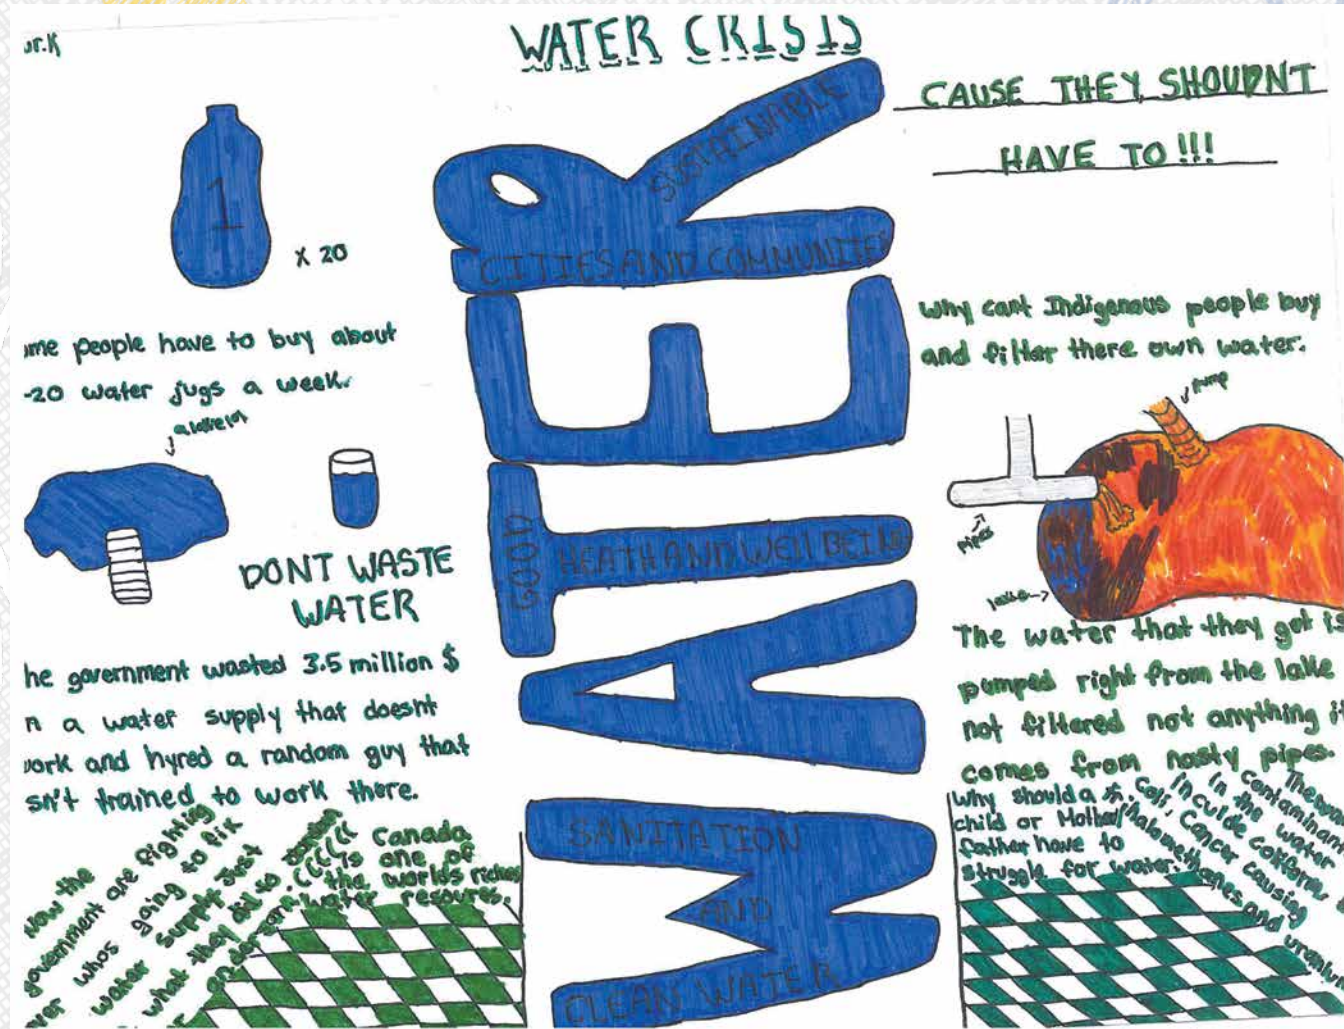 ur.K
WATER CRISIS
CAUSE THEY SHOUDNT
HAVE TO!!!
1
X 20
ome people have to buy about
-20 water jugs a week.
DONT WASTE
WATER
he government wasted 3.5 million $
n a water supply that doesnt
work and hyred a random guy that
sn't trained to work there.
Now the
government are fighting
over whos going to fix
water supply Just
what they did to
Canada
is one of
the worlds riches
water resources.
SUSTAINABLE
CITIES AND COMMUNITIES
GOOD
HEATH AND WELL BEING
SANITATION
AND
CLEAN WATER
WATER
Why cant Indigenous people buy
and filter there own water.
pump
pipes
lake
The water that they got is
pumped right from the lake
not filtered not anything it
comes from nasty pipes.
Why should a
child or Mother/
father have to
struggle for water.
The
contaminan
in the water
inculde coliforms,
Coli, Cancer causing
halomethanes and